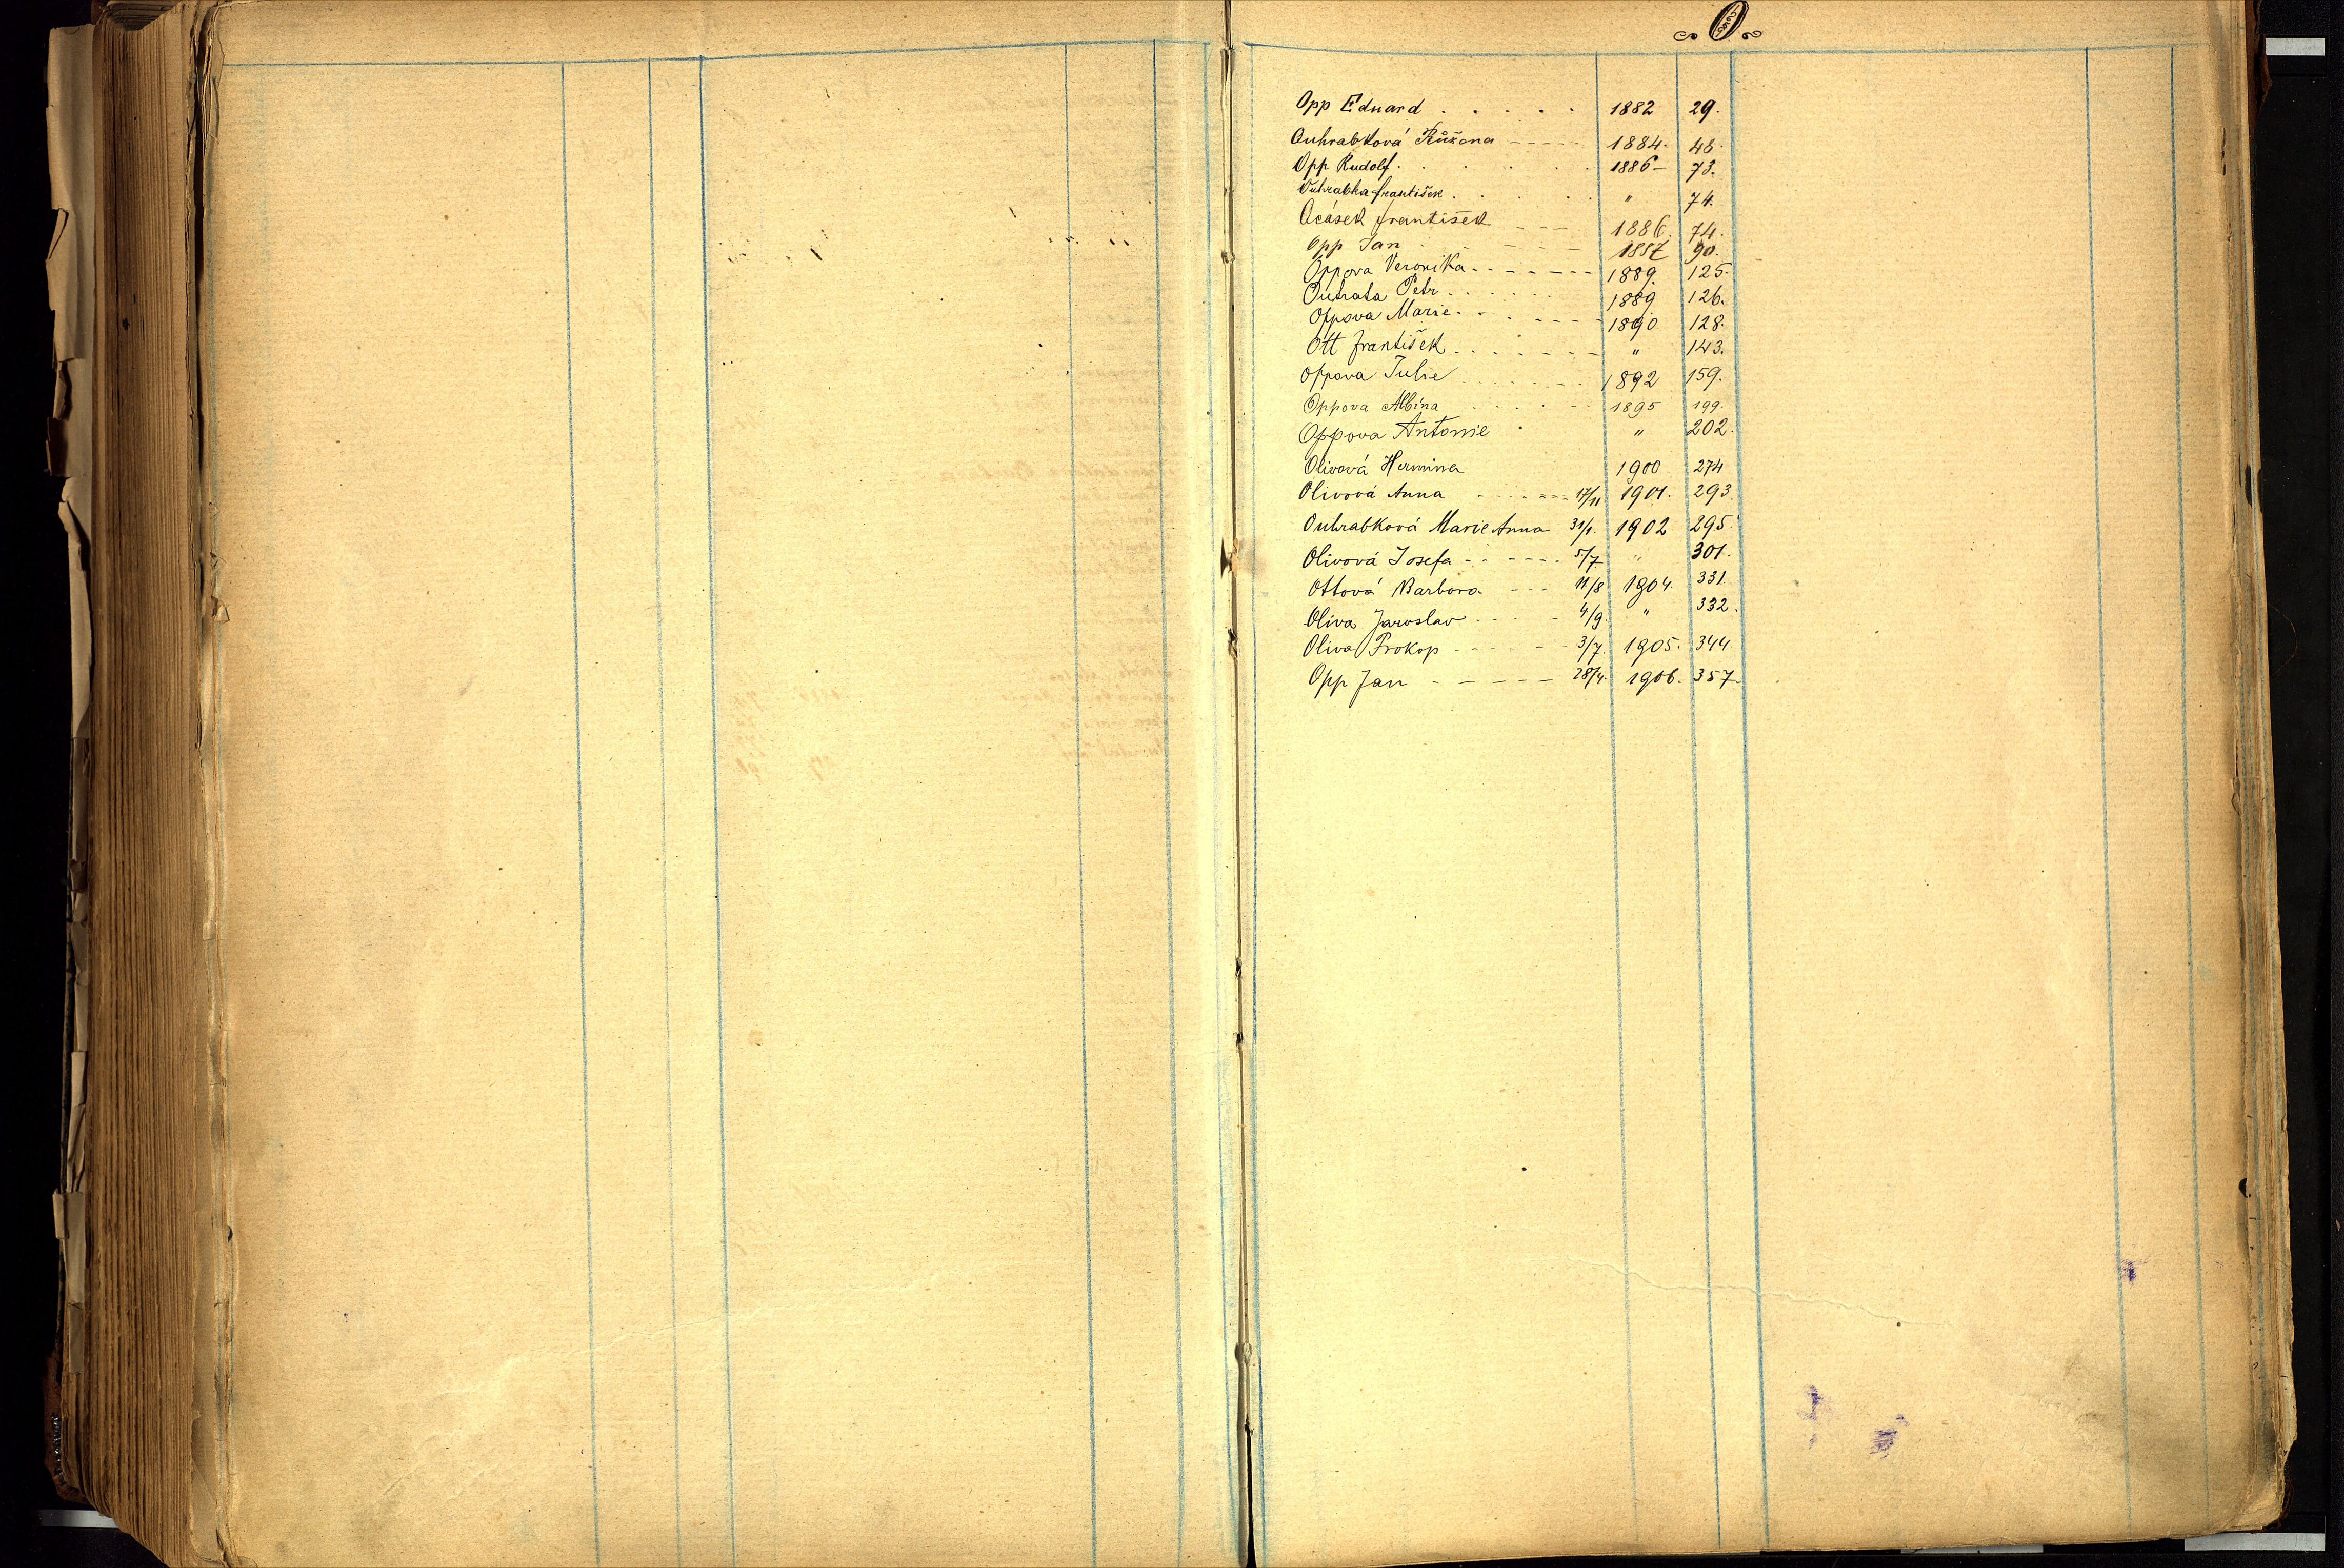 O
Opp Eduard . . . . . 1882 29.
Ouhrabková Růžena ----- 1884. 48.
Opp Rudolf . . . . . . 1886- 73.
Ouhrabka František . . . . . " 74.
Ocásek František --- 1886. 74.
Opp Jan . . - - - - 1887 90.
Oppova Veronika ------- 1889. 125.
Outrata Petr . . . . . . 1889 126.
Oppova Marie . . . - - - 1890 128.
Ott František . . . . - - - " 143.
Oppova Julie . . . . . - - 1892 159.
Oppova Albina . . . . . - 1895 199.
Oppova Antonie . " 202.
Olivová Hermina 1900 274
Olivová Anna ------ 17/11 1901. 293.
Outrabková Marie Anna 31/1. 1902 295.
Olivová Josefa ------ 5/7 " 301.
Ottová Barbora --- 11/8 1904. 331.
Oliva Jaroslav - - - - 4/9. " 332.
Oliva Prokop ------ 3/7. 1905. 344
Opp Jan ----- 28/4. 1906. 357.